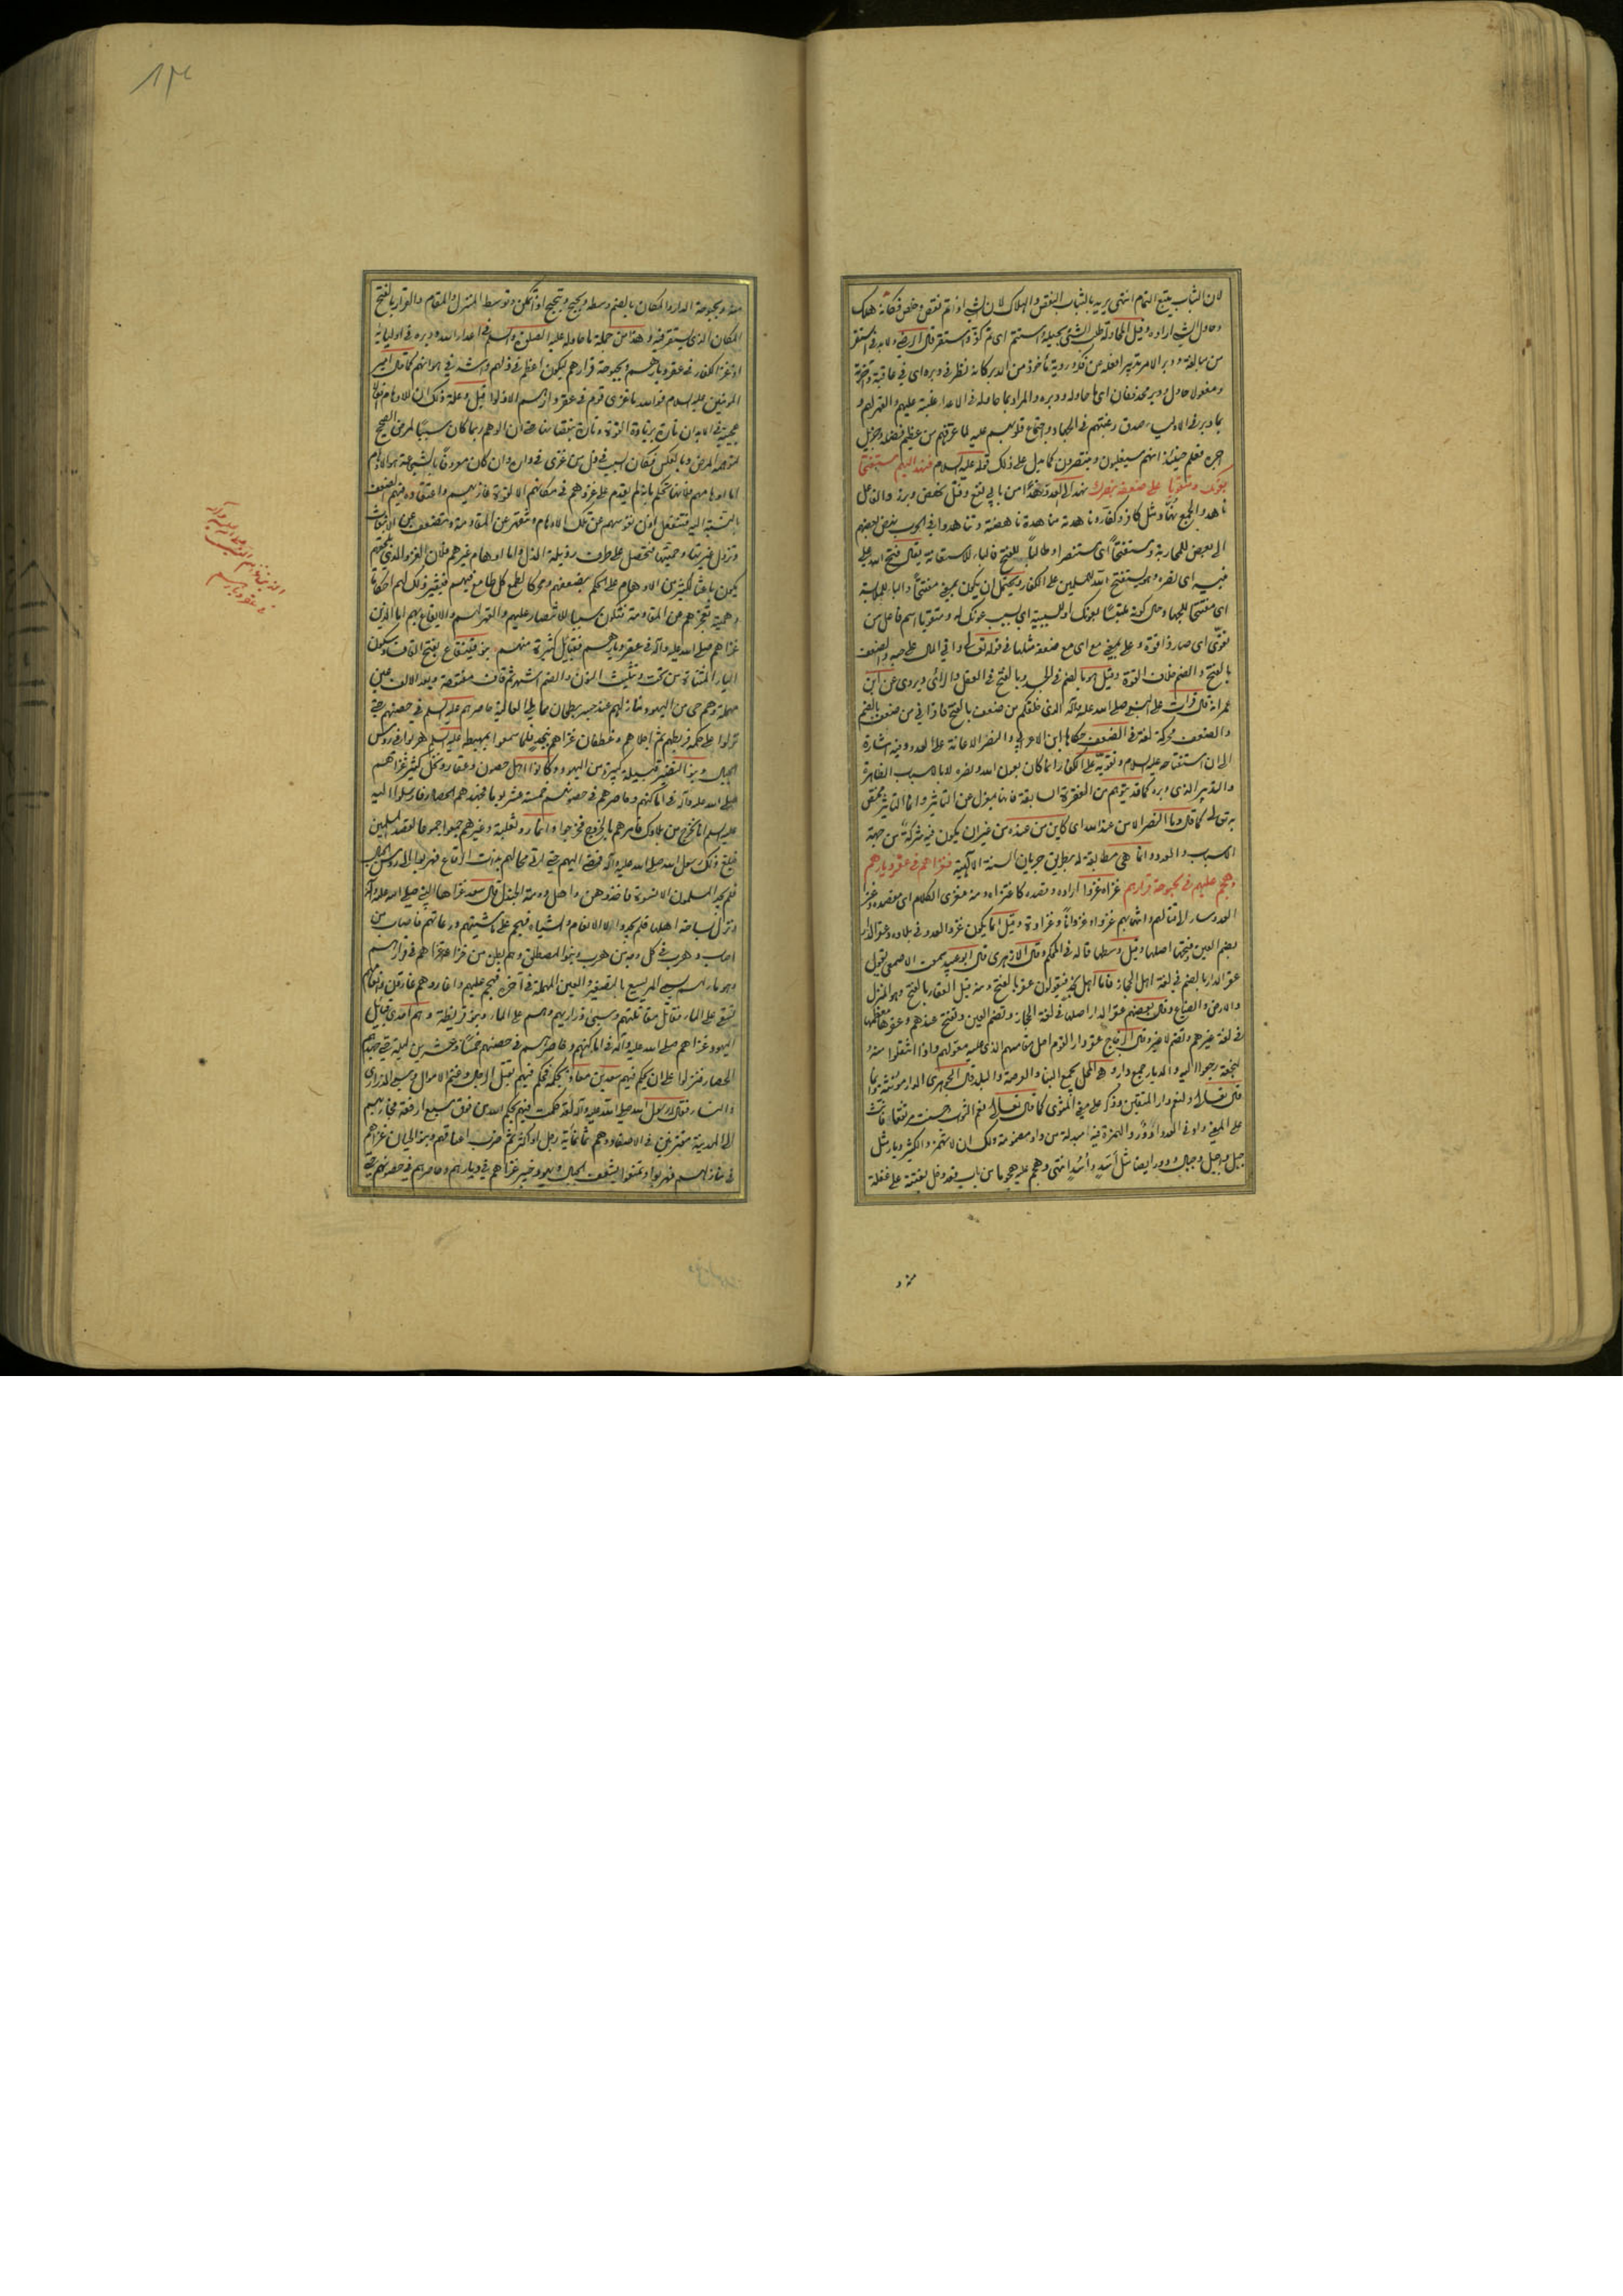 لان التباب يتبع التمام انتهى يريد بالتباب النقص والهلاك لان الشيء اذا تم نقص
وحاول الشيء اراده وقيل المحاولة طلب الشيء بحيلة واستتم اي تم
من مبالغة ودبر الامر تدبيرا فعله عن فكر وروية مأخوذ من الدبر كانه نظر في دبره اي في عاقبته وآخره
ومفعولا حاول ودبر محذوفان اي ما حاوله ودبره والمراد بما حاوله في الاعداء غلبته عليهم والقهر لهم و
بما دبر في الاولياء صدق رغبتهم في الجهاد واجتماع قلوبهم عليه لما عرفهم من عظيم فضله وجزيل
اجره فعلم حينئذ انهم سيغلبون وينتصرون كما يدل على ذلك قوله عليه السلام فنهد اليهم مستفتحا
بعونك ومتقويا على ضعفه بنصرك نهد الى العدو نهدا من بابي نفع وقتل نهض وبرز والفاعل
ناهد والجمع نهاد مثل كافر وكفار وناهدته مناهدة ناهضته وتناهدوا في الحرب نهض بعضهم
الى بعض للمحاربة ومستفتحا اي مستنصرا وطالبا للفتح فالباء للاستعانة يقال فتح الله على
نبيه اي نصره وهو يستفتح الله للمسلمين على الكفار ويحتمل ان يكون بمعنى مفتتحا والباء للملابسة
اي مفتتحا للجهاد حال كونه ملتبسا بعونك او للسببية اي بسبب عونك له ومتقويا اسم فاعل من
تقوى اي صار ذا قوة وعلى بمعنى مع اي مع ضعفه مثلها في قوله تعالى واتى المال على حبه والضعف
بالفتح والضم خلاف القوة وقيل هو بالضم في الجسد وبالفتح في العقل والرأي ويروى عن ابن
عمر انه قال قرأت على النبي صلى الله عليه وآله الذي خلقكم من ضعف بالفتح فاقرأني من ضعف بالضم
والضعف محركة لغة في الضعف حكاها ابن الاعرابي والنصر الاعانة على العدو وفيه اشارة
الى ان استفتاحه عليه السلام وتقويه على الكفار انما كان بعون الله ونصره لا بالاسباب الظاهرة
والتدبير الذي دبره كما قد يتوهم من الفقرة السابقة فانها بمعزل عن التأثير وانما التأثير مختص
به تعالى كما قال وما النصر الا من عند الله اي كاين من عنده من غير ان يكون فيه شركة من جهة
الاسباب والعدد وانما هي مظاهر له بطريق جريان السنة الالهية فغزاهم في عقر ديارهم
وهجم عليهم في بحبوحة قرارهم غزاه غزوا اراده وقصده كاغتزاه ومنه مغزى الكلام اي مقصده وغزا
العدو سار الى قتالهم وانتهابهم غزوا وغزوانا وغزاوة وقيل انما يكون غزو العدو في بلاده وعقر الدار
بضم العين وفتحها اصلها وقيل وسطها قاله في المحكم وقال الازهري قال ابو عبيد سمعت الاصمعي يقول
عقر الدار بالضم في لغة اهل الحجاز فاما اهل نجد فيقولون عقر بالفتح ومنه قيل العقار بالفتح وهو المنزل
والارض والضياع وقال بعضهم عقر الدار اصلها في لغة الحجاز وتضم العين وتفتح عندهم وعقرها معظمها
في لغة غيرهم وتضم لا غير وقال الزجاج عقر دار القوم اصل مقامهم الذي عليه معولهم واذا انتقلوا منه
لنجعة رجعوا اليه والديار جمع دار وهي المحل يجمع البناء والعرصة والبلد قال الجوهري الدار مؤنثة وانما
قال تعالى ولنعم دار المتقين فذكر على معنى المثوى كما قال تعالى نعم الثواب وحسنت مرتفقا فانث
على المعنى وادنى العدد ادؤر والهمزة فيه مبدلة من واو مضمومة ولك ان لا تهمز والكثير ديار مثل
جبل واجبل وجبال ودور ايضا مثل اسد وأسد انتهى وهجم عليه هجوما من باب قعد دخل بغتة على غفلة
منه و
منه وبحبوحة الدار والمكان بالضم وسطه وبحبح وتبحبح اذا تمكن وتوسط المنزل والمقام والقرار بالفتح
المكان الذي يستقر فيه وهذا من جملة ما حاوله عليه الصلوة والسلام في اعداء الله ودبره في اوليائه
اذ غزا الكفار في عقر ديارهم وبحبوحة قرارهم ليكون اعظم في ذلهم واشد في هوانهم كما قال امير
المؤمنين عليه السلام فوالله ما غزي قوم في عقر دارهم الا ذلوا قيل وعلة ذلك ان للاوهام افعالا
عجيبة في الابدان تارة بزيادة القوة وتارة بنقصانها حتى ان الوهم ربما كان سببا لمرض الصحيح
لتوهمه المرض وبالعكس فكان السبب في ذل من غزي في داره وان كان معروفا بالشجاعة هو الاوهام
اما اوهامهم فلانها تحكم بانه لم يقدم على غزوهم في مكانهم الا لقوة غازيهم واعتقاده فيهم الضعف
بالنسبة اليه فتنفعل اذن نفوسهم عن تلك الاوهام وتنقهر عن المقاومة وتضعف عن الانبعاث
وتزول غيرتها وحميتها فتحصل على طرف رذيلة الذل واما اوهام غيرهم فلان الغزو الذي يلحقهم
يكون باعثا لكثير من الاوهام على الحكم بضعفهم ومحركا لطمع كل طامع فيهم فيثير ذلك لهم احكاما
وهمية تعجزهم عن المقاومة فتكون سببا للانتصار عليهم والقهر لهم والايقاع بهم اما الذين
غزاهم صلى الله عليه وآله في عقر ديارهم فقبايل كثيرة منهم بنو قينقاع بفتح القاف وسكون
الياء المثناة من تحت وتثليث النون والضم اشهر ثم قاف مفتوحة وبعد الالف عين
مهملة وهم حي من اليهود
نزلوا على حكمه فربطهم ثم اجلاهم وغطفان غزاهم بنجد فلما سمعوا بمهبطه عليه السلام هربوا في رؤس
الجبال وبنو النضير قبيلة كبيرة من اليهود وكانوا اهل حصون وعقار ونخل كثير غزاهم
صلى الله عليه وآله في اماكنهم وحاصرهم في حصونهم خمسة عشر يوما فجهدهم الحصار فارسلوا اليه
عليه السلام انا نخرج من بلادك فامرهم بالخروج فخرجوا وانمار وثعلبة وغيرهم جمعوا جموعا لقصد المسلمين
فبلغ ذلك رسول الله صلى الله عليه وآله فمضى اليهم حتى اتى محالهم بذات الرقاع فهربوا الى رؤس الجبال
فلم يجد المسلمون الا نسوة فاخذوهن واهل دومة الجندل قال سعد غزاها النبي صلى الله عليه وآله
ونزل بساحة اهلها فلم يجد الا الانعام والشياه فهجم على ماشيتهم ورعاتهم فاصاب من
اصاب وهرب في كل وجه من هرب وبنو المصطلق وهم بطن من خزاعة غزاهم في قرارهم
وهو ماء لهم يسمى المريسيع بالتصغير والعين المهملة في آخره فهجم عليهم واغار وهم غارون وانعامهم
تسقى على الماء فقاتل مقاتلتهم وسبى ذراريهم وهم على الماء وبنو قريظة وهم احدى قبايل
اليهود غزاهم صلى الله عليه وآله في اماكنهم وحاصرهم في حصنهم خمسا وعشرين ليلة حتى جهدهم
الحصار فنزلوا على ان يحكم فيهم سعد بن معاذ بحكمه فحكم فيهم بقتل الرجال وغنم الاموال وسبي الذراري
والنساء فقال رسول الله صلى الله عليه وآله لقد حكمت فيهم بحكم الله من فوق سبع ارقعة فجاء بهم
الى المدينة مقرنين في الاصفاد وهم ثمانمائة رجل او اكثر ثم ضرب اعناقهم وبنو لحيان غزاهم
في منازلهم فهربوا وتمنعوا بشعف الجبال ويهود خيبر غزاهم في ديارهم وحاصرهم في حصونهم حتى
الذين غزاهم النبي صلى الله عليه وآله
في عقر ديارهم